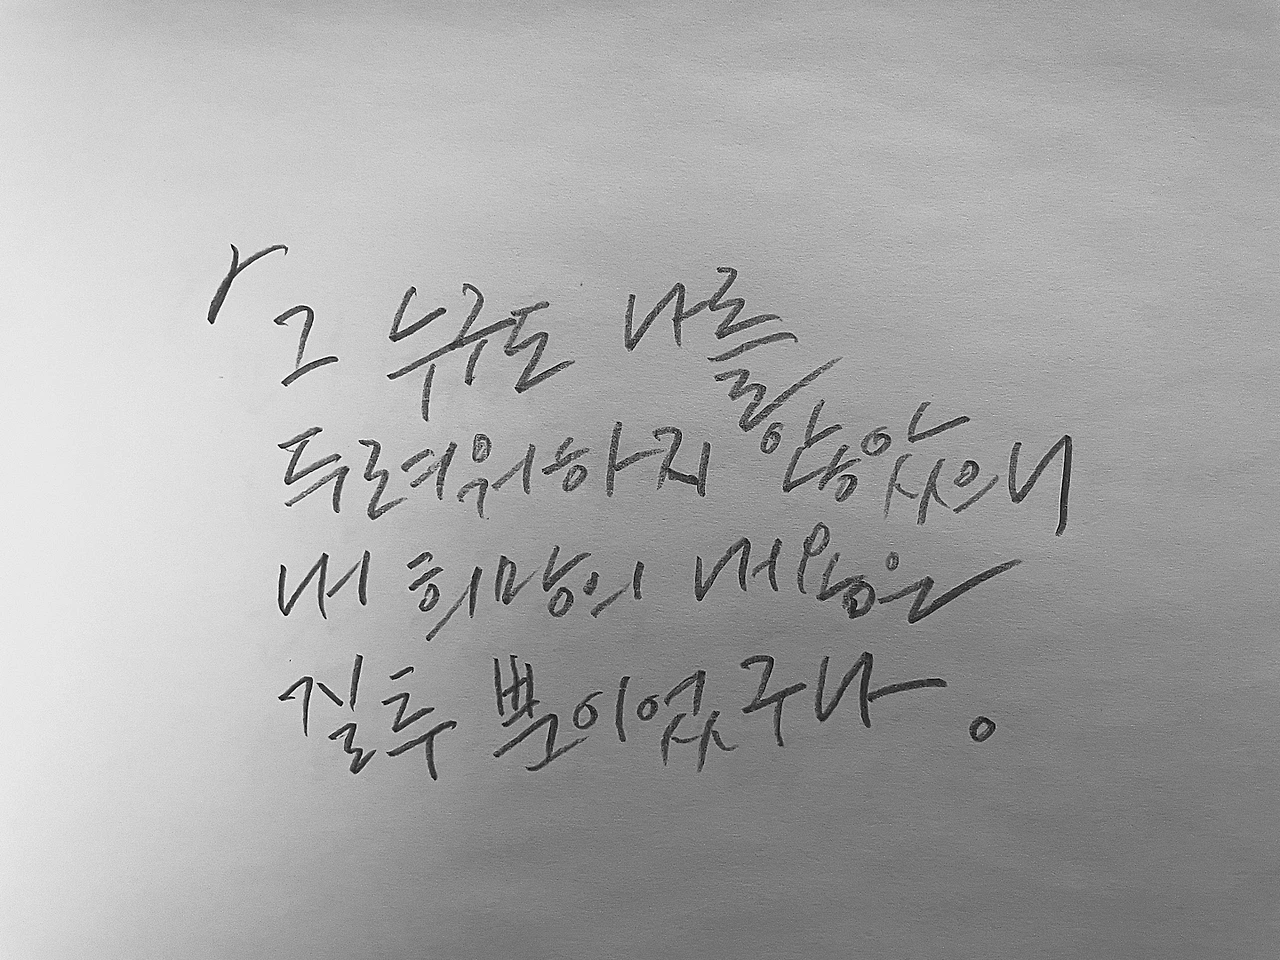 「그 누구도 나를
두려워하지 않았으니
내 희망의 내용은
질투 뿐이었구나。